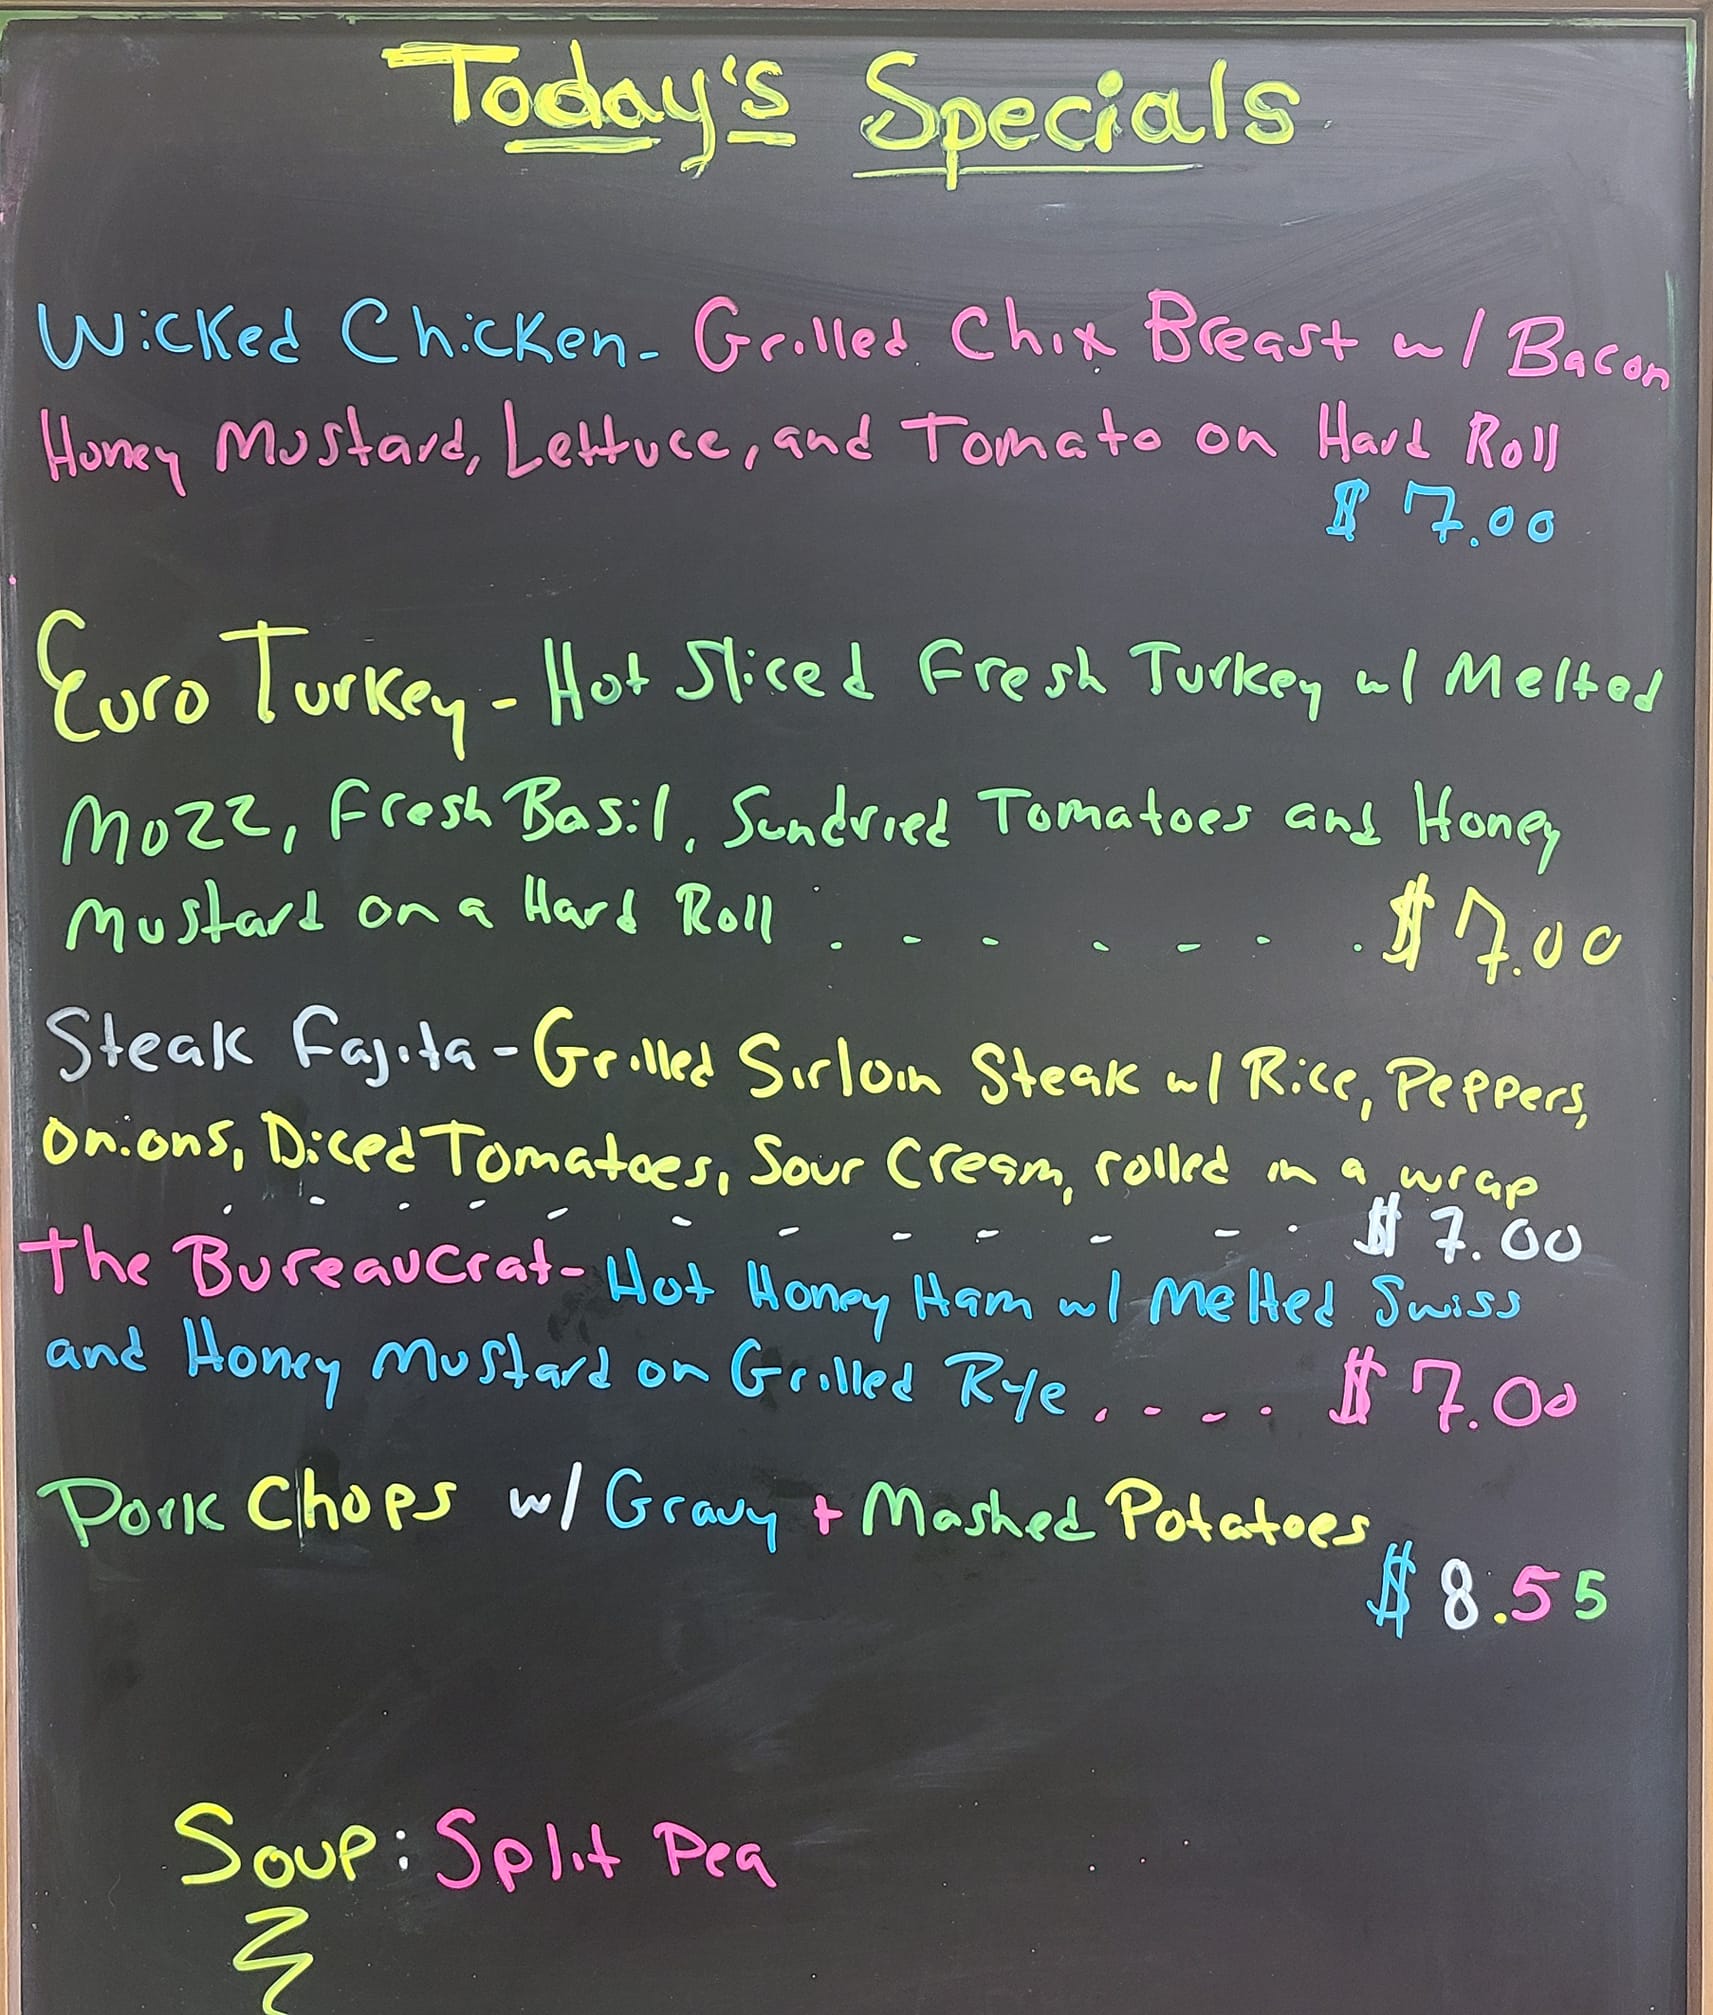 Today's Specials
Wicked Chicken - Grilled Chix Breast w/ Bacon
Honey Mustard, Lettuce, and Tomato on Hard Roll
$ 7.00
Euro Turkey - Hot Sliced Fresh Turkey w/ Melted
Mozz, Fresh Basil, Sundried Tomatoes and Honey
Mustard on a Hard Roll . - - - - - . $ 7.00
Steak Fajita - Grilled Sirloin Steak w/ Rice, Peppers,
Onions, Diced Tomatoes, Sour Cream, rolled in a wrap
. - . - - - - - - - - . $ 7.00
The Bureaucrat - Hot Honey Ham w/ Melted Swiss
and Honey Mustard on Grilled Rye . - - . $ 7.00
Pork Chops w/ Gravy + Mashed Potatoes
$ 8.55
Soup: Split Pea